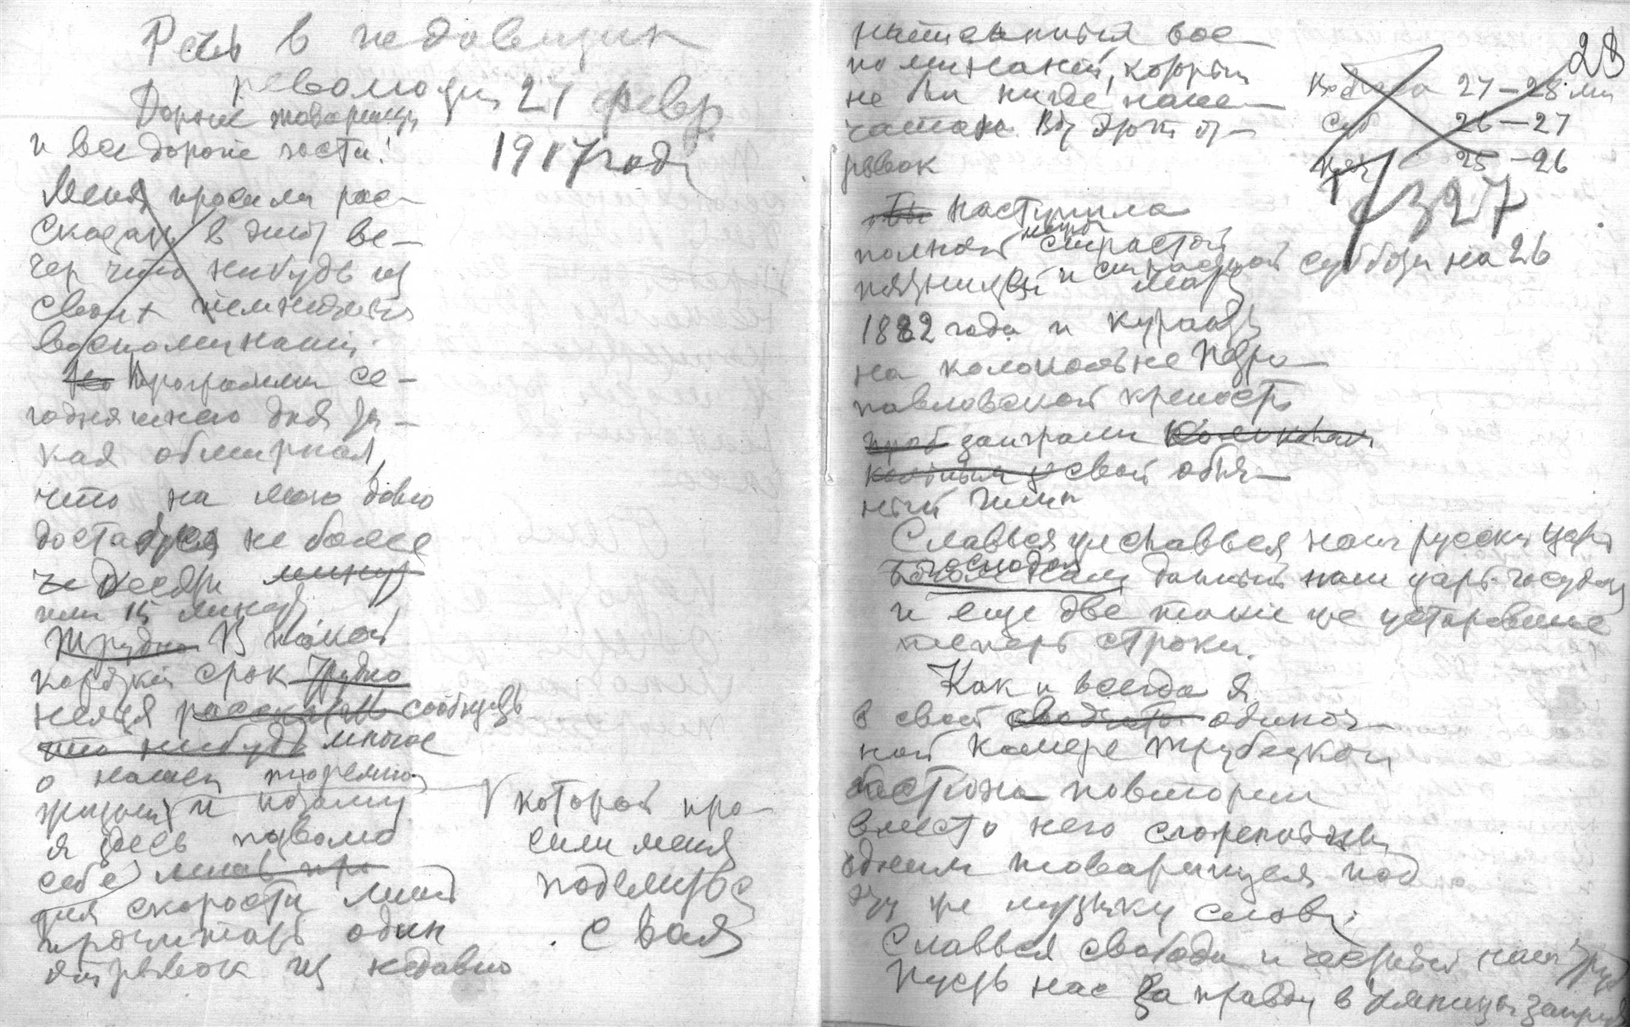 Речь в годовщину
революции 27 февр.
1917 года
Дорогие товарищи
и все дорогие гости!
Меня просили рас-
сказать в этот ве-
чер что нибудь из
своих тюремных
воспоминаний.
Но Программа се-
годняшнего дня та-
кая обширная,
что на мою долю
достается не более
чем десяти минут
или 15 минут
Трудно В такой
короткий срок трудно
нельзя рассказать сообщить
что нибудь многое
о нашей тюремной
жизни и потому
я здесь позволю
себе лишь про
для скорости лишь
прочитать один
отрывок из недавно
V которой про-
сили меня
поделиться
с вами
28
написанных вос-
поминаний, которые
не были нигде напе-
чатаны. Вот этот от-
рывок
27—28
суб 26—27
пят 25—26
1327
Бы наступила
полночь между страстной
пятницей и страстной субботы на 26
марта
1882 года и куранты
на колокольне Петро-
павловской крепости
проб заиграли
свой обыч-
ный гимн
Славься, славься наш русский царь
Господом нам данный наш царь-государь
и еще две такие же устаревшие
теперь строки.
Как и всегда я
в своей одиноч-
ной камере Трубецкого
бастиона повторил
вместо него сложенный
одним товарищем под
эту же музыку слова:
Славься свобода и честный наш труд
Пусть нас за правду в темницы запрут